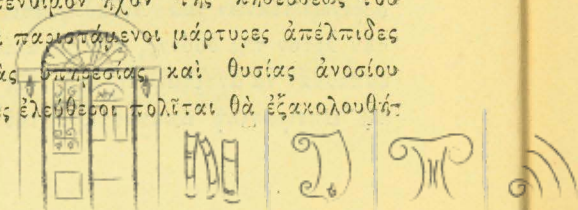 τῆς κηδεύσεως τοῦ
παριστάμενοι μάρτυρες ἀπέλπιδες
ὑπηρεσίας καὶ θυσίας ἀνοσίου
ἐλεύθεροι πολῖται θὰ ἐξακολουθή